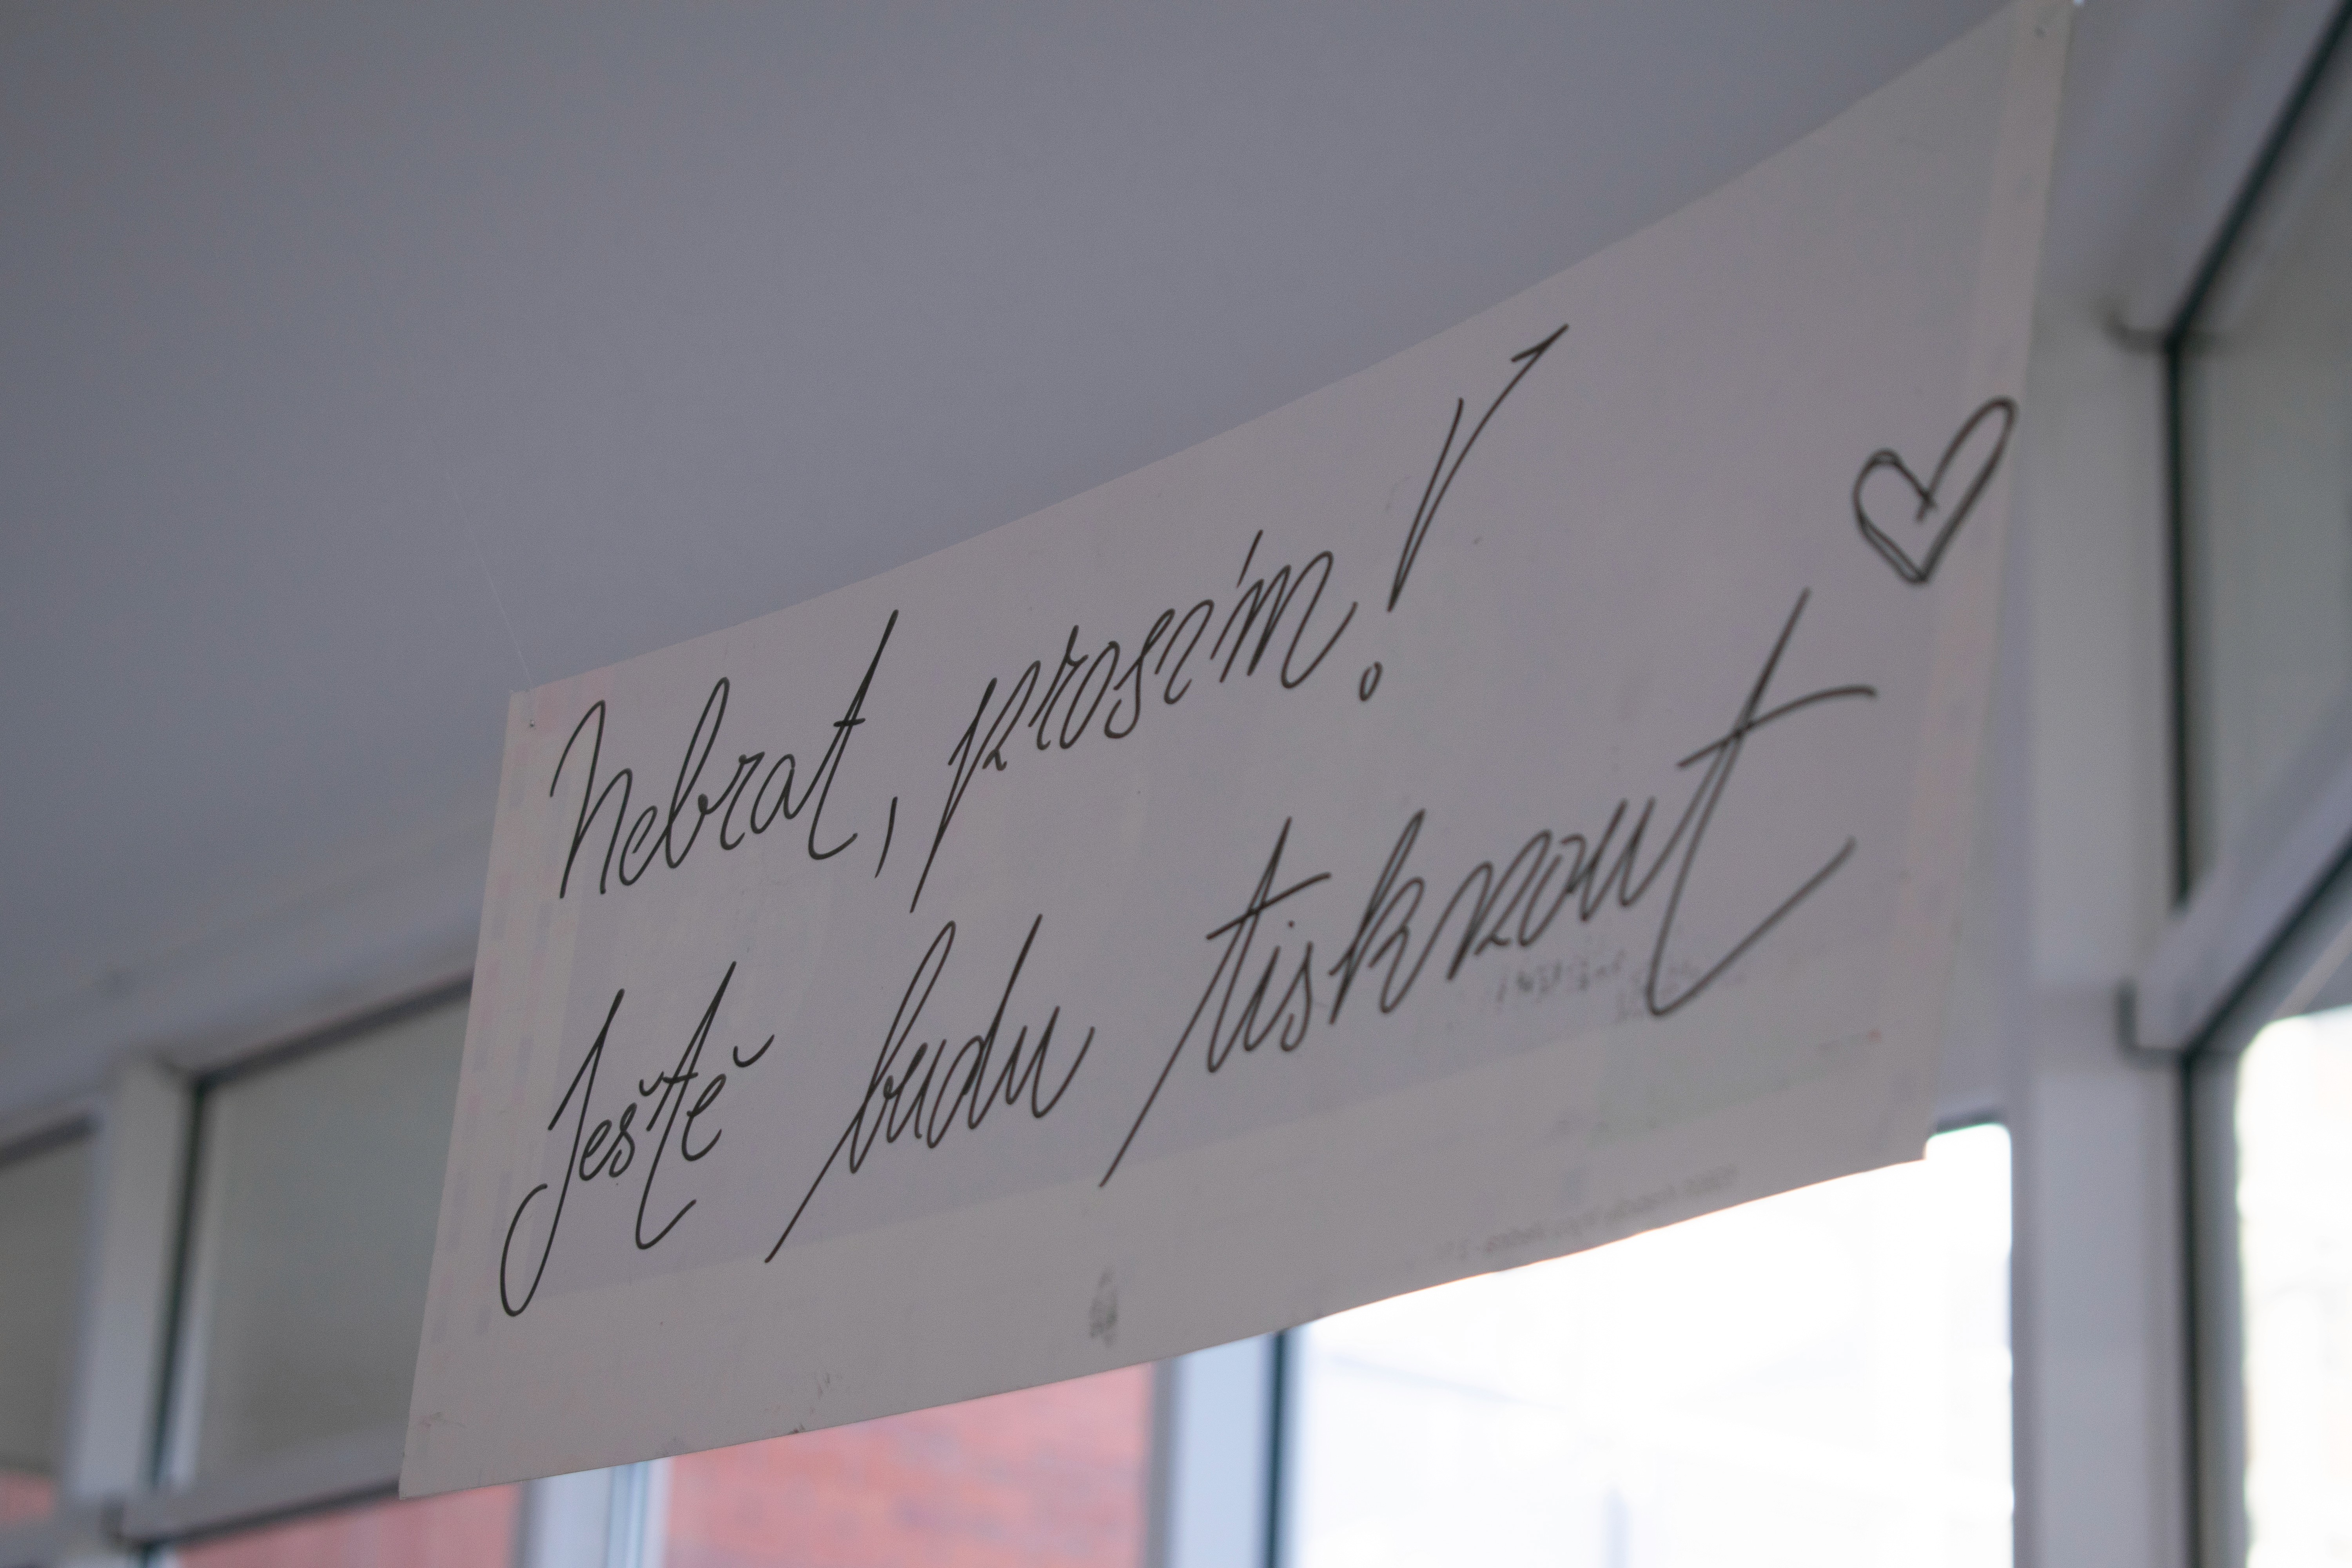 Nebrat, prosím!
Ještě budu tisknout ♡